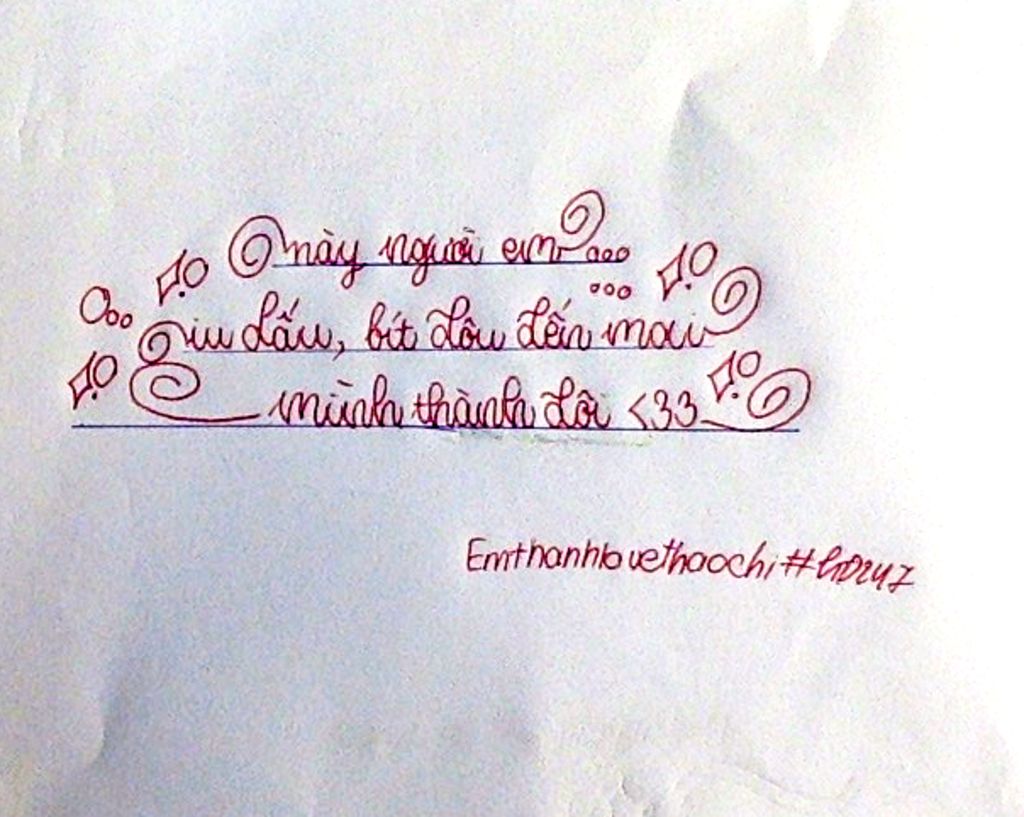 này người em...
iu dấu, bít đâu đến mai
mình thành đôi <33
Emthanhlovethaochi